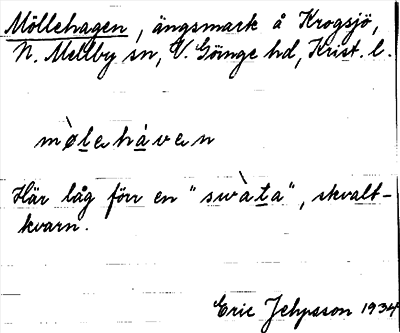 Möllehagen, ängsmark å Krogsjö,
N. Mellby sn, V. Göinge hd, Krist. l.
mø̀lehàven
Här låg förr en "swàta", skvalt-
kvarn.
Eric Jehpsson 1934